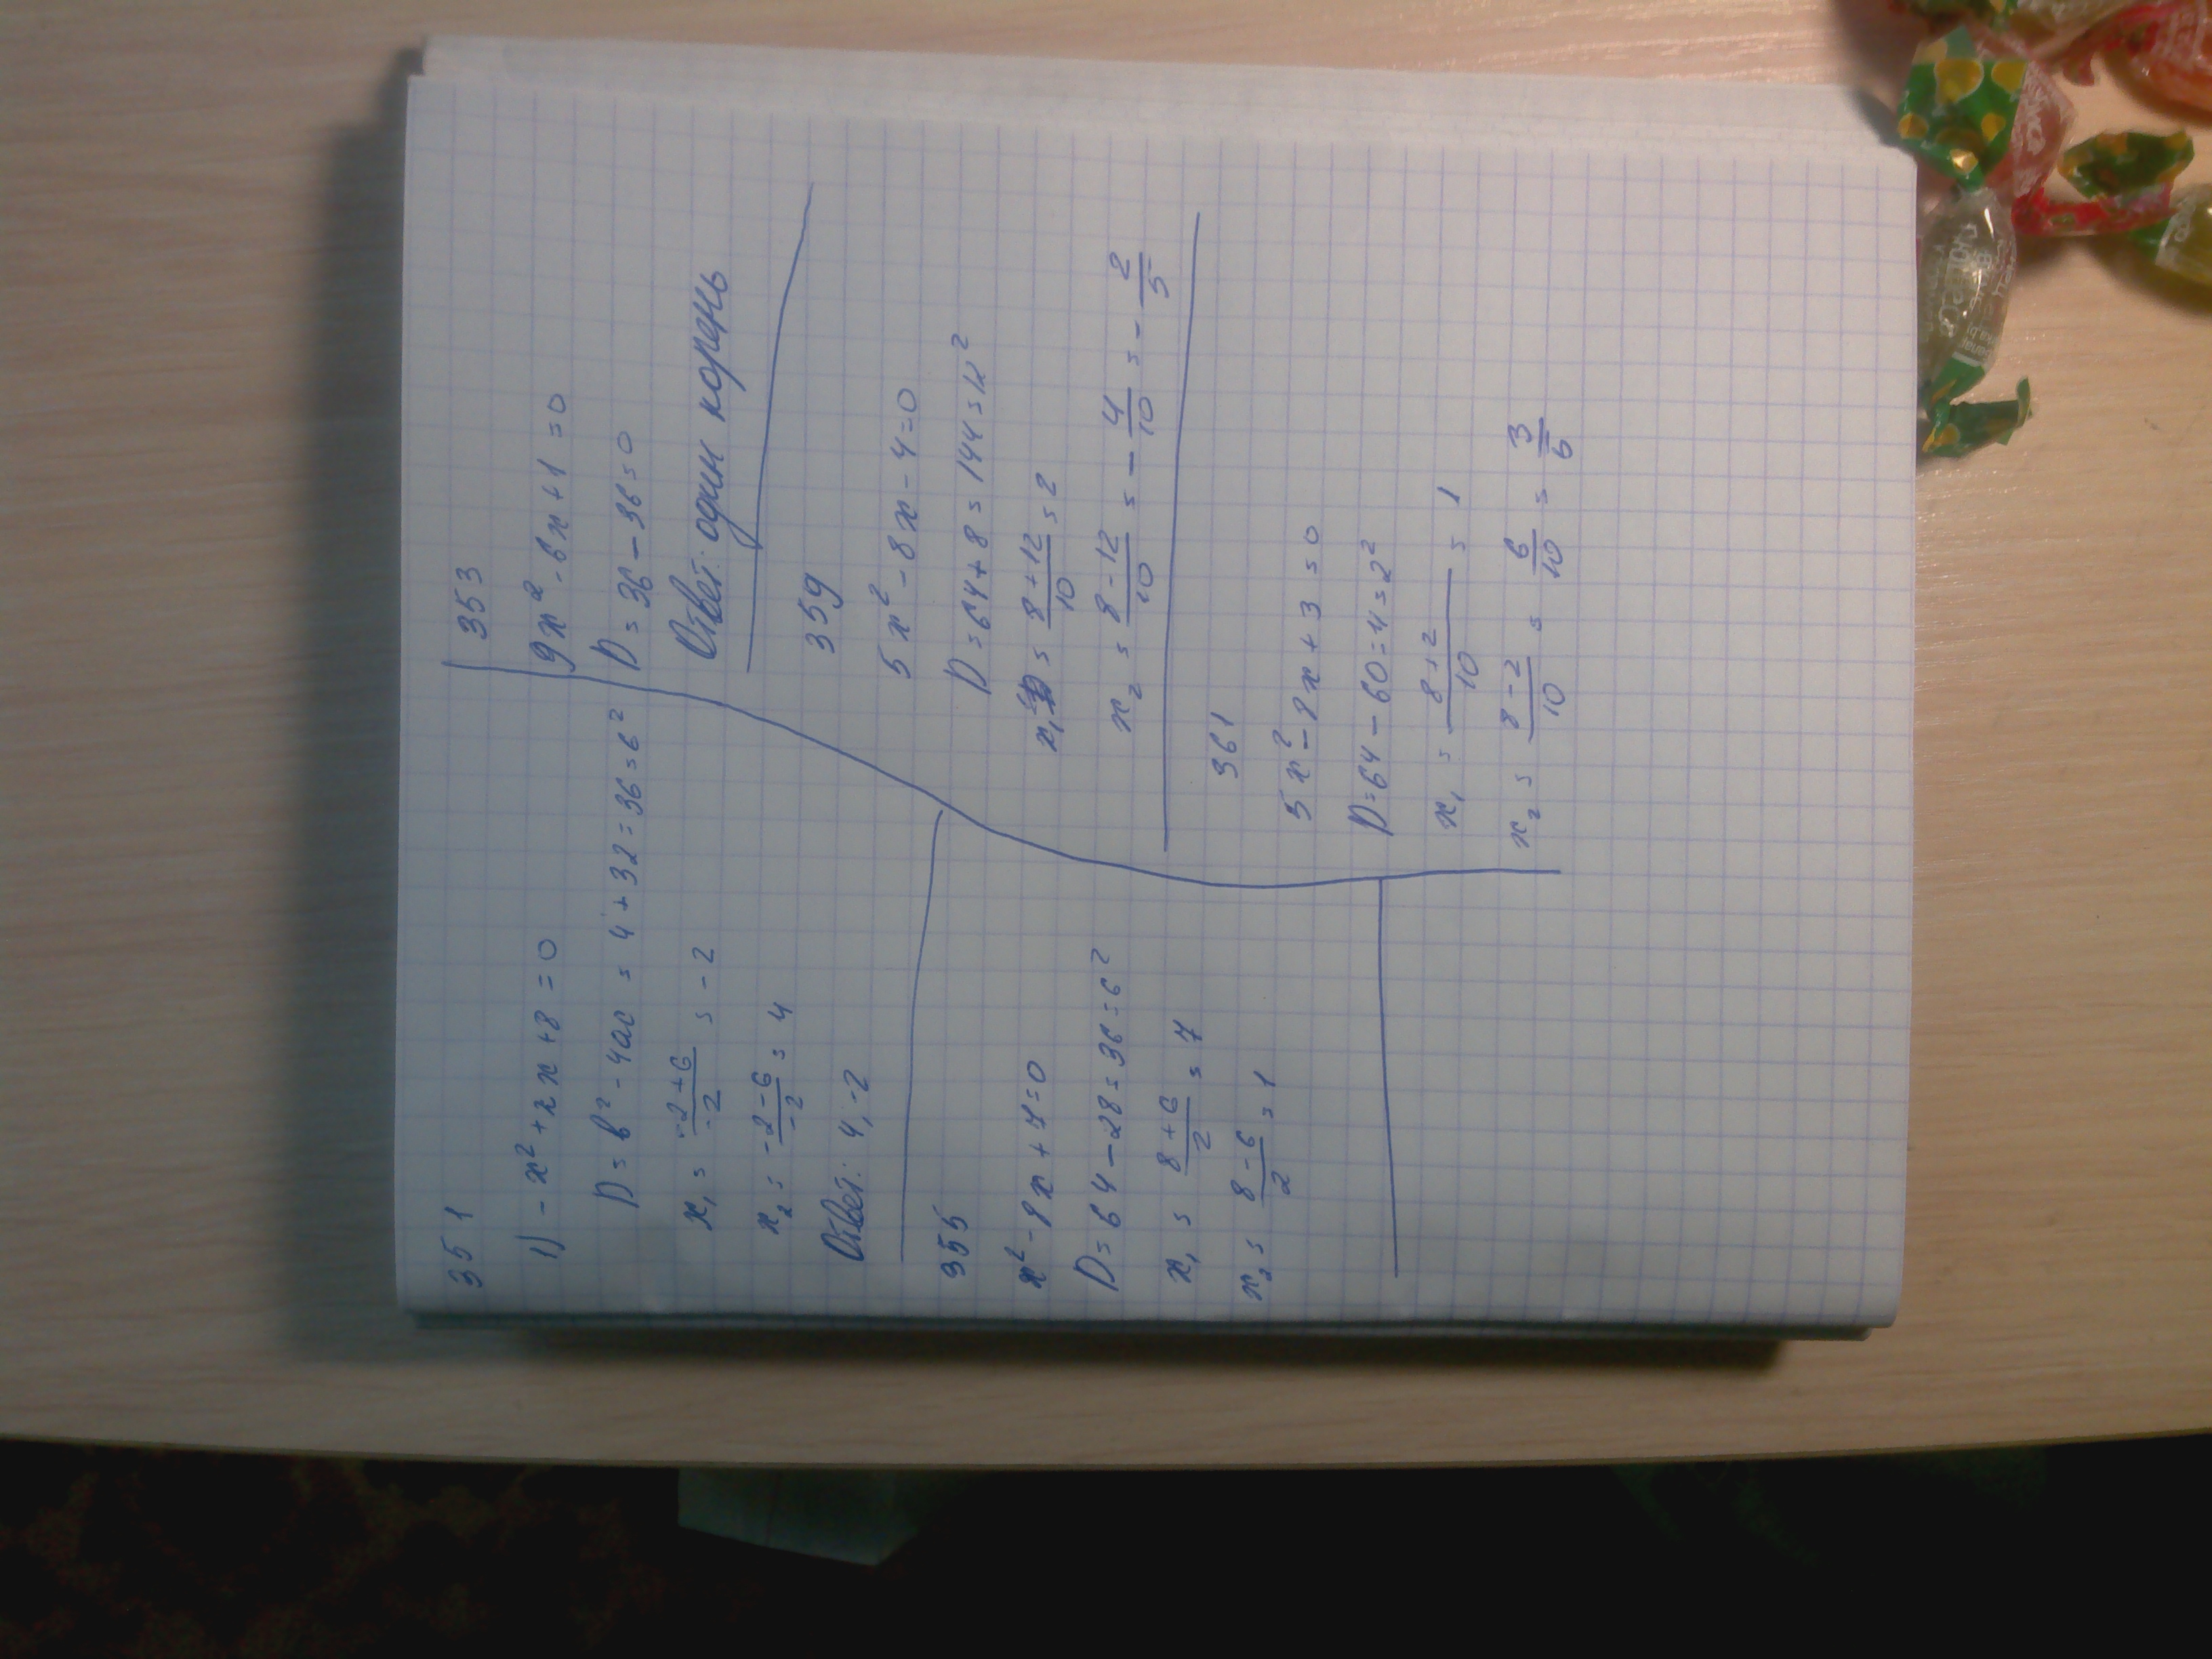 351
1) -x² + 2x + 8 = 0
D = b² - 4ac = 4 + 32 = 36 = 6²
x₁ = (-2+6)/(-2) = -2
x₂ = (-2-6)/(-2) = 4
Ответ: 4, -2
355
x² - 8x + 7 = 0
D = 64 - 28 = 36 = 6²
x₁ = (8+6)/2 = 7
x₂ = (8-6)/2 = 1
353
9x² - 6x + 1 = 0
D = 36 - 36 = 0
Ответ: один корень
359
5x² - 8x - 4 = 0
D = 64 + 8 = 144 = 12²
x₁ = (8+12)/10 = 2
x₂ = (8-12)/10 = -4/10 = -2/5
361
5x² - 8x + 3 = 0
D = 64 - 60 = 4 = 2²
x₁ = (8+2)/10 = 1
x₂ = (8-2)/10 = 6/10 = 3/6